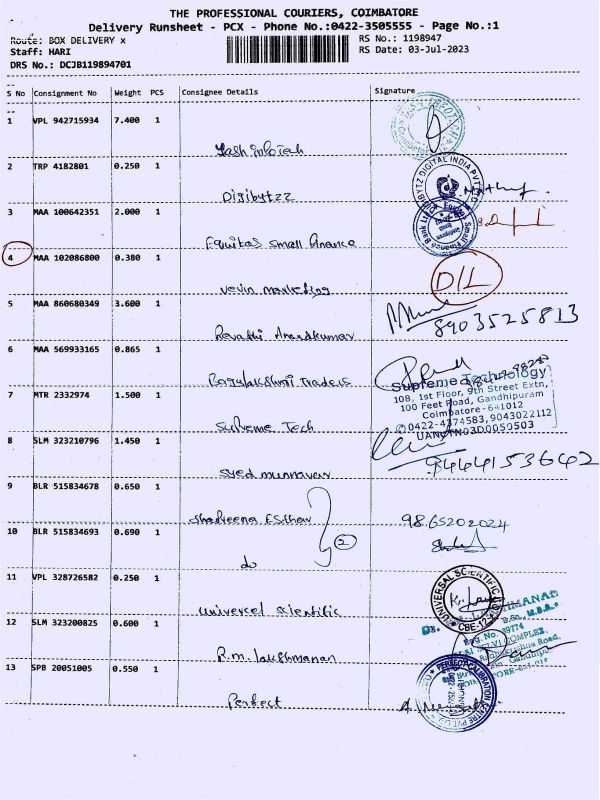 THE PROFESSIONAL COURIERS, COIMBATORE
Delivery Runsheet - PCX - Phone No.:0422-3505555 - Page No.:1
Route: BOX DELIVERY x
RS No.: 1198947
Staff: HARI
RS Date: 03-Jul-2023
DRS No.: DCJB119894701
S No Consignment No Weight PCS Consignee Details Signature
1 VPL 942715934 7.400 1
Yash infotech
2 TRP 4182801 0.250 1
DIGIBYTZ DIGITAL INDIA PVT
Digibytzz
3 MAA 100642351 2.000 1
Small Finance Bank
Equitas small finance
4 MAA 102086800 0.380 1
D/L
vevin marketing
5 MAA 860680349 3.600 1
8903525813
Revathi Anandkumar
6 MAA 569933165 0.865 1
Rajalakshmi Traders
Supreme Technology
108, 1st Floor, 9th Street Extn,
7 MTR 2332974 1.500 1
100 Feet Road, Gandhipuram
Coimbatore - 641012
0422-4374583, 9043022112
Supreme Tech
8 SLM 323210796 1.450 1
9444153642
Syed munnavar
9 BLR 515834678 0.650 1
9865202024
10 BLR 515834693 0.690 1
2
do
11 VPL 328726582 0.250 1
UNIVERSAL SCIENTIFIC
CBE-12
universel scientific
12 SLM 323200825 0.600 1
Reg. No. 39774
R.m. lakshmanan
13 SPB 20051005 0.550 1
PERFECT CALIBRATION CENTRE PVT LTD
Perfect